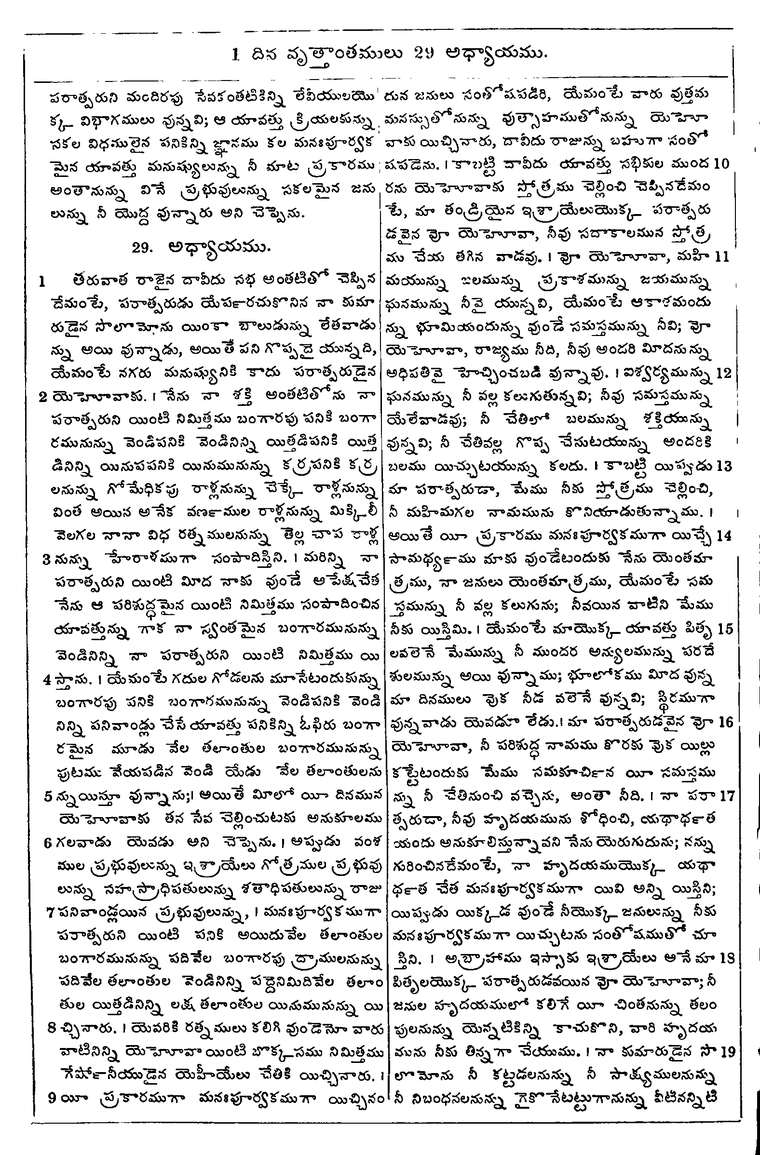 1 దిన వృత్తాంతములు 29 అధ్యాయము.
పరాత్పరుని మందిరపు సేవకంతటికిన్ని లేవీయులయొ
క్క విభాగములు వున్నవి; ఆ యావత్తు క్రియలకున్ను
సకల విధములైన పనికిన్ని జ్ఞానము కల మనఃపూర్వక
మైన యావత్తు మనుష్యులున్ను నీ మాట ప్రకారము
అంతానున్ను వినే ప్రభువులున్ను సకలమైన జను
లున్ను నీ యొద్ద వున్నారు అని చెప్పెను.
29. అధ్యాయము.
1 తరువాత రాజైన దావీదు సభ అంతటితో చెప్పిన
దేమంటే, పరాత్పరుడు యేపఱరచుకొనిన నా కుమా
రుడైన సొలొమోను యింకా బాలుడున్ను లేతవాడు
న్ను అయి వున్నాడు, అయితే పని గొప్పదై యున్నది,
యేమంటే నగరు మనుష్యునికి కాదు పరాత్పరుడైన
2 యెహోవాకు. । నేను నా శక్తి అంతటితోను నా
పరాత్పరుని యింటి నిమిత్తము బంగారపు పనికి బంగా
రమునున్ను వెండిపనికి వెండినిన్ని యిత్తడిపనికి యిత్త
డినిన్ని యినుపపనికి యినుమునున్ను కర్రపనికి కర్ర
లనున్ను గోమేధికపు రాళ్లనున్ను చెక్కే రాళ్లనున్ను
వింత అయిన అనేక వర్ణముల రాళ్లనున్ను మిక్కిలీ
వెలగల నానా విధ రత్నములనున్ను తెల్ల చాప రాళ్ల
3 నున్ను హేరాళముగా సంపాదిస్తిని. । మరిన్ని నా
పరాత్పరుని యింటి మీద నాకు వుండే అపేక్షచేత
నేను ఆ పరిశుద్ధమైన యింటి నిమిత్తము సంపాదించిన
యావత్తున్ను గాక నా స్వంతమైన బంగారమునున్ను
వెండినిన్ని నా పరాత్పరుని యింటి నిమిత్తము యి
4 స్తాను. । యేమంటే గదుల గోడలను మూసేటందుకున్ను
బంగారపు పనికి బంగారమునున్ను వెండిపనికి వెండి
నిన్ని పనివాండ్లు చేసే యావత్తు పనికిన్ని ఓఫిరు బంగా
రమైన మూడు వేల తలాంతుల బంగారమునున్ను
పుటము వేయపడిన వెండి యేడు వేల తలాంతులను
5 న్నుయిస్తూ వున్నాను;। అయితే మీలో యీ దినమున
యెహోవాకు తన సేవ చెల్లించుటకు అనుకూలము
6 గలవాడు యెవడు అని చెప్పెను. । అప్పుడు వంశ
ముల ప్రభువులున్ను ఇశ్రాయేలు గోత్రముల ప్రభువు
లున్ను సహస్రాధిపతులున్ను శతాధిపతులున్ను రాజు
7 పనివాండ్లయిన ప్రభువులున్ను, । మనఃపూర్వకముగా
పరాత్పరుని యింటి పనికి అయిదువేల తలాంతుల
బంగారమునున్ను పదివేల బంగారపు ద్రాములనున్ను
పదివేల తలాంతుల వెండినిన్ని పద్దెనిమిదివేల తలాం
తుల యిత్తడినిన్ని లక్ష తలాంతుల యినుమునున్ను యి
8 చ్చినారు. । యెవరికి రత్నములు కలిగి వుండెనో వారు
వాటినిన్ని యెహోవా యింటి బొక్కసము నిమిత్తము
గేర్షోనీయుడైన యెహీయేలు చేతికి యిచ్చినారు. ।
9 యీ ప్రకారముగా మనఃపూర్వకముగా యిచ్చినం
దున జనులు సంతోషపడిరి, యేమంటే వారు వుత్తమ
మనస్సుతోనున్ను వుత్సాహముతోనున్ను యెహో
వాకు యిచ్చినారు, దావీదు రాజున్ను బహుగా సంతో
షపడెను. । కాబట్టి దావీదు యావత్తు సభికుల ముంద 10
రను యెహోవాకు స్తోత్రము చెల్లించి చెప్పినదేమం
టే, మా తండ్రియైన ఇశ్రాయేలుయొక్క పరాత్పరు
డవైన వో యెహోవా, నీవు సదాకాలమున స్తోత్ర
ము చేయ తగిన వాడవు. । వో యెహోవా, మహి 11
మయున్ను బలమున్ను ప్రకాశమున్ను జయమున్ను
ఘనమున్ను నీవై యున్నవి, యేమంటే ఆకాశమందు
న్ను భూమియందున్ను వుండే సమస్తమున్ను నీవి; వో
యెహోవా, రాజ్యము నీది, నీవు అందరి మీదనున్ను
అధిపతివై హెచ్చించబడి వున్నావు. । ఐశ్వర్యమున్ను 12
ఘనమున్ను నీ వల్ల కలుగుతున్నవి; నీవు సమస్తమున్ను
యేలేవాడవు; నీ చేతిలో బలమున్ను శక్తియున్ను
వున్నవి; నీ చేతివల్ల గొప్ప చేసుటయున్ను అందరికి
బలము యిచ్చుటయున్ను కలదు. । కాబట్టి యిప్పుడు 13
మా పరాత్పరుడా, మేము నీకు స్తోత్రము చెల్లించి,
నీ మహిమగల నామమును కొనియాడుతున్నాము. ।
అయితే యీ ప్రకారము మనఃపూర్వకముగా యిచ్చే 14
సామర్థ్యము మాకు వుండేటందుకు నేను యెంతమా
త్రము, నా జనులు యెంతమాత్రము, యేమంటే సమ
స్తమున్ను నీ వల్ల కలుగును; నీవయిన వాటిని మేము
నీకు యిస్తిమి. । యేమంటే మాయొక్క యావత్తు పితృ 15
లవలెనే మేమున్ను నీ ముందర అన్యులమున్ను పరదే
శులమున్ను అయి వున్నాము; భూలోకము మీద వున్న
మా దినములు వొక నీడ వలెనే వున్నవి; స్థిరముగా
వున్నవాడు యెవడూ లేడు.। మా పరాత్పరుడవైన వో 16
యెహోవా, నీ పరిశుద్ధ నామము కొరకు వొక యిల్లు
కట్టేటందుకు మేము సమకూర్చిన యీ సమస్తము
న్ను నీ చేతినుంచి వచ్చెను, అంతా నీది. । నా పరా 17
త్పరుడా, నీవు హృదయమును శోధించి, యథార్థత
యందు అనుకూలిస్తున్నావని నేను యెరుగుదును; నన్ను
గురించినదేమంటే, నా హృదయముయొక్క యథా
ర్థత చేత మనఃపూర్వకముగా యివి అన్ని యిస్తిని;
యిప్పుడు యిక్కడ వుండే నీయొక్క జనులున్ను నీకు
మనఃపూర్వకముగా యిచ్చుటను సంతోషముతో చూ
స్తిని. । అబ్రాహాము ఇస్సాకు ఇశ్రాయేలు అనే మా 18
పితృలయొక్క పరాత్పరుడవయిన వో యెహోవా; నీ
జనుల హృదయములో కలిగే యీ చింతనున్ను తలం
పులనున్ను యెన్నటికిన్ని కాచుకొని, వారి హృదయ
మును నీకు తిన్నగా చేయుము. । నా కుమారుడైన సొ 19
లొమోను నీ కట్టడలనున్ను నీ సాక్ష్యములనున్ను
నీ నిబంధనలనున్ను గైకొనేటట్టుగానున్ను వీటినన్నిటి